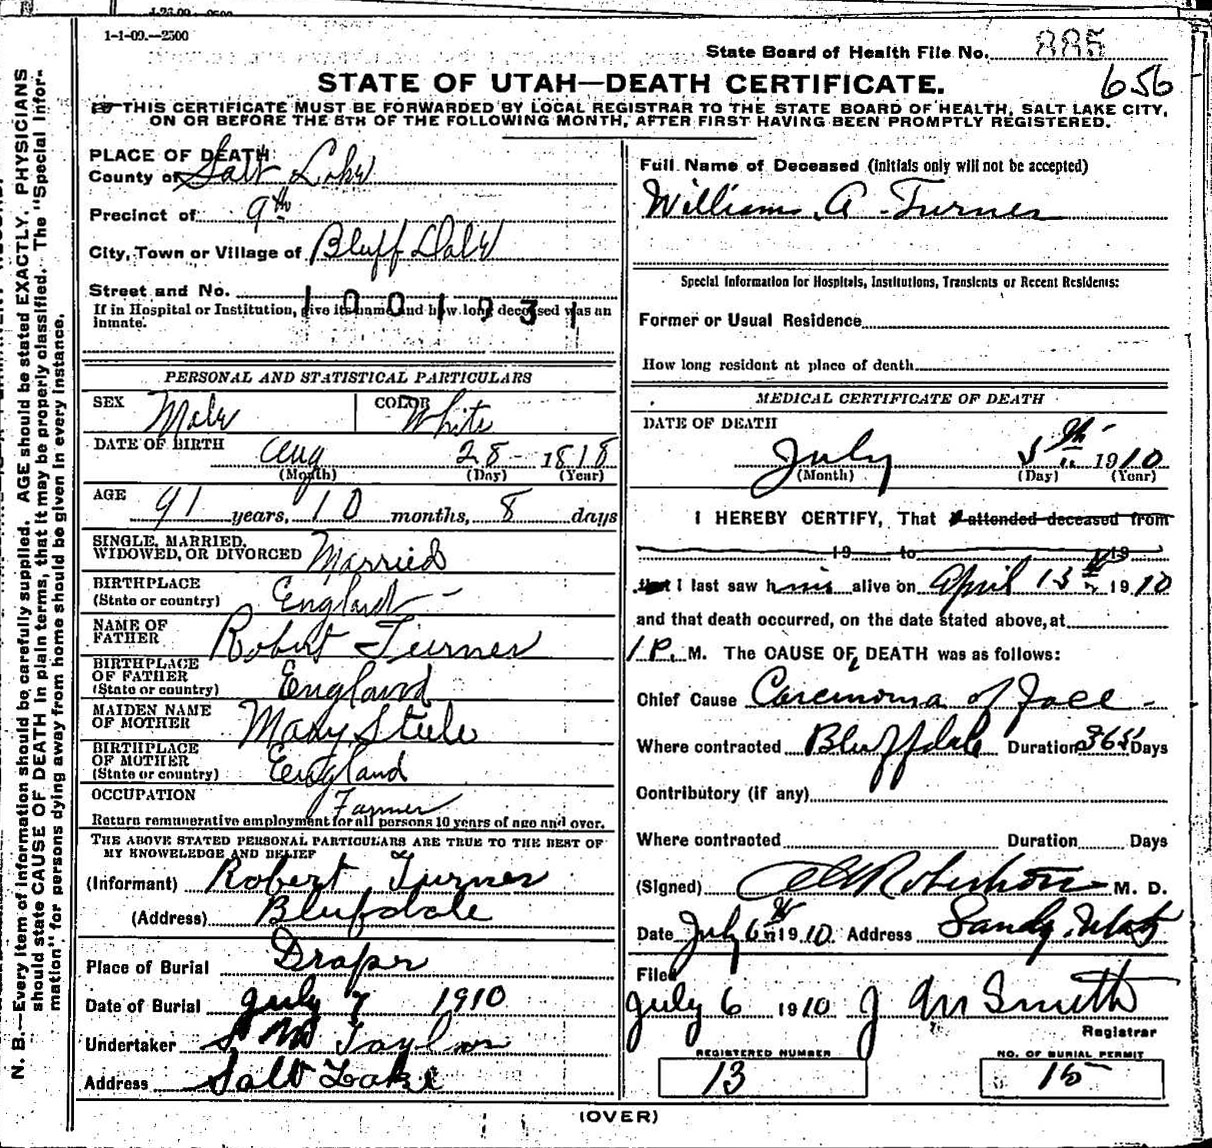 1-1-09.—2500
State Board of Health File No. 885
656
STATE OF UTAH—DEATH CERTIFICATE.
THIS CERTIFICATE MUST BE FORWARDED BY LOCAL REGISTRAR TO THE STATE BOARD OF HEALTH, SALT LAKE CITY,
ON OR BEFORE THE 5TH OF THE FOLLOWING MONTH, AFTER FIRST HAVING BEEN PROMPTLY REGISTERED.
N. B.—Every item of information should be carefully supplied. AGE should be stated EXACTLY. PHYSICIANS
should state CAUSE OF DEATH in plain terms, that it may be properly classified. The "Special Infor-
mation" for persons dying away from home should be given in every instance.
PLACE OF DEATH
County of Salt Lake
Precinct of 9th
City, Town or Village of Bluff Dale
Street and No.
1001931
If in Hospital or Institution, give its name and how long deceased was an
inmate.
PERSONAL AND STATISTICAL PARTICULARS
SEX Male COLOR White
DATE OF BIRTH Aug 28 - 1818
(Month) (Day) (Year)
AGE 91 years, 10 months, 8 days
SINGLE, MARRIED,
WIDOWED, OR DIVORCED Married
BIRTHPLACE
(State or country) England -
NAME OF
FATHER Robert Turner
BIRTHPLACE
OF FATHER
(State or country) England
MAIDEN NAME
OF MOTHER Mary Stule
BIRTHPLACE
OF MOTHER
(State or country) England
OCCUPATION Farmer
Return remunerative employment for all persons 10 years of age and over.
THE ABOVE STATED PERSONAL PARTICULARS ARE TRUE TO THE BEST OF
MY KNOWLEDGE AND BELIEF
(Informant) Robert Turner
(Address) Blufdale
Place of Burial Draper
Date of Burial July 7 1910
Undertaker S M Taylor
Address Salt Lake
Full Name of Deceased (initials only will not be accepted)
William A. Turner
Special Information for Hospitals, Institutions, Transients or Recent Residents:
Former or Usual Residence
How long resident at place of death
MEDICAL CERTIFICATE OF DEATH
DATE OF DEATH
July 5th 1910
(Month) (Day) (Year)
I HEREBY CERTIFY, That I attended deceased from
19 to 19
that I last saw him alive on April 13th 1910
and that death occurred, on the date stated above, at
1 P. M. The CAUSE OF DEATH was as follows:
Chief Cause Carcinoma of face -
Where contracted Bluffdale Duration 365 Days
Contributory (if any)
Where contracted Duration Days
(Signed) Robertson M. D.
Date July 6th 1910 Address Sandy, Utah
Filed
July 6 1910 J M Smith
Registrar
REGISTERED NUMBER
13
NO. OF BURIAL PERMIT
15
(OVER)